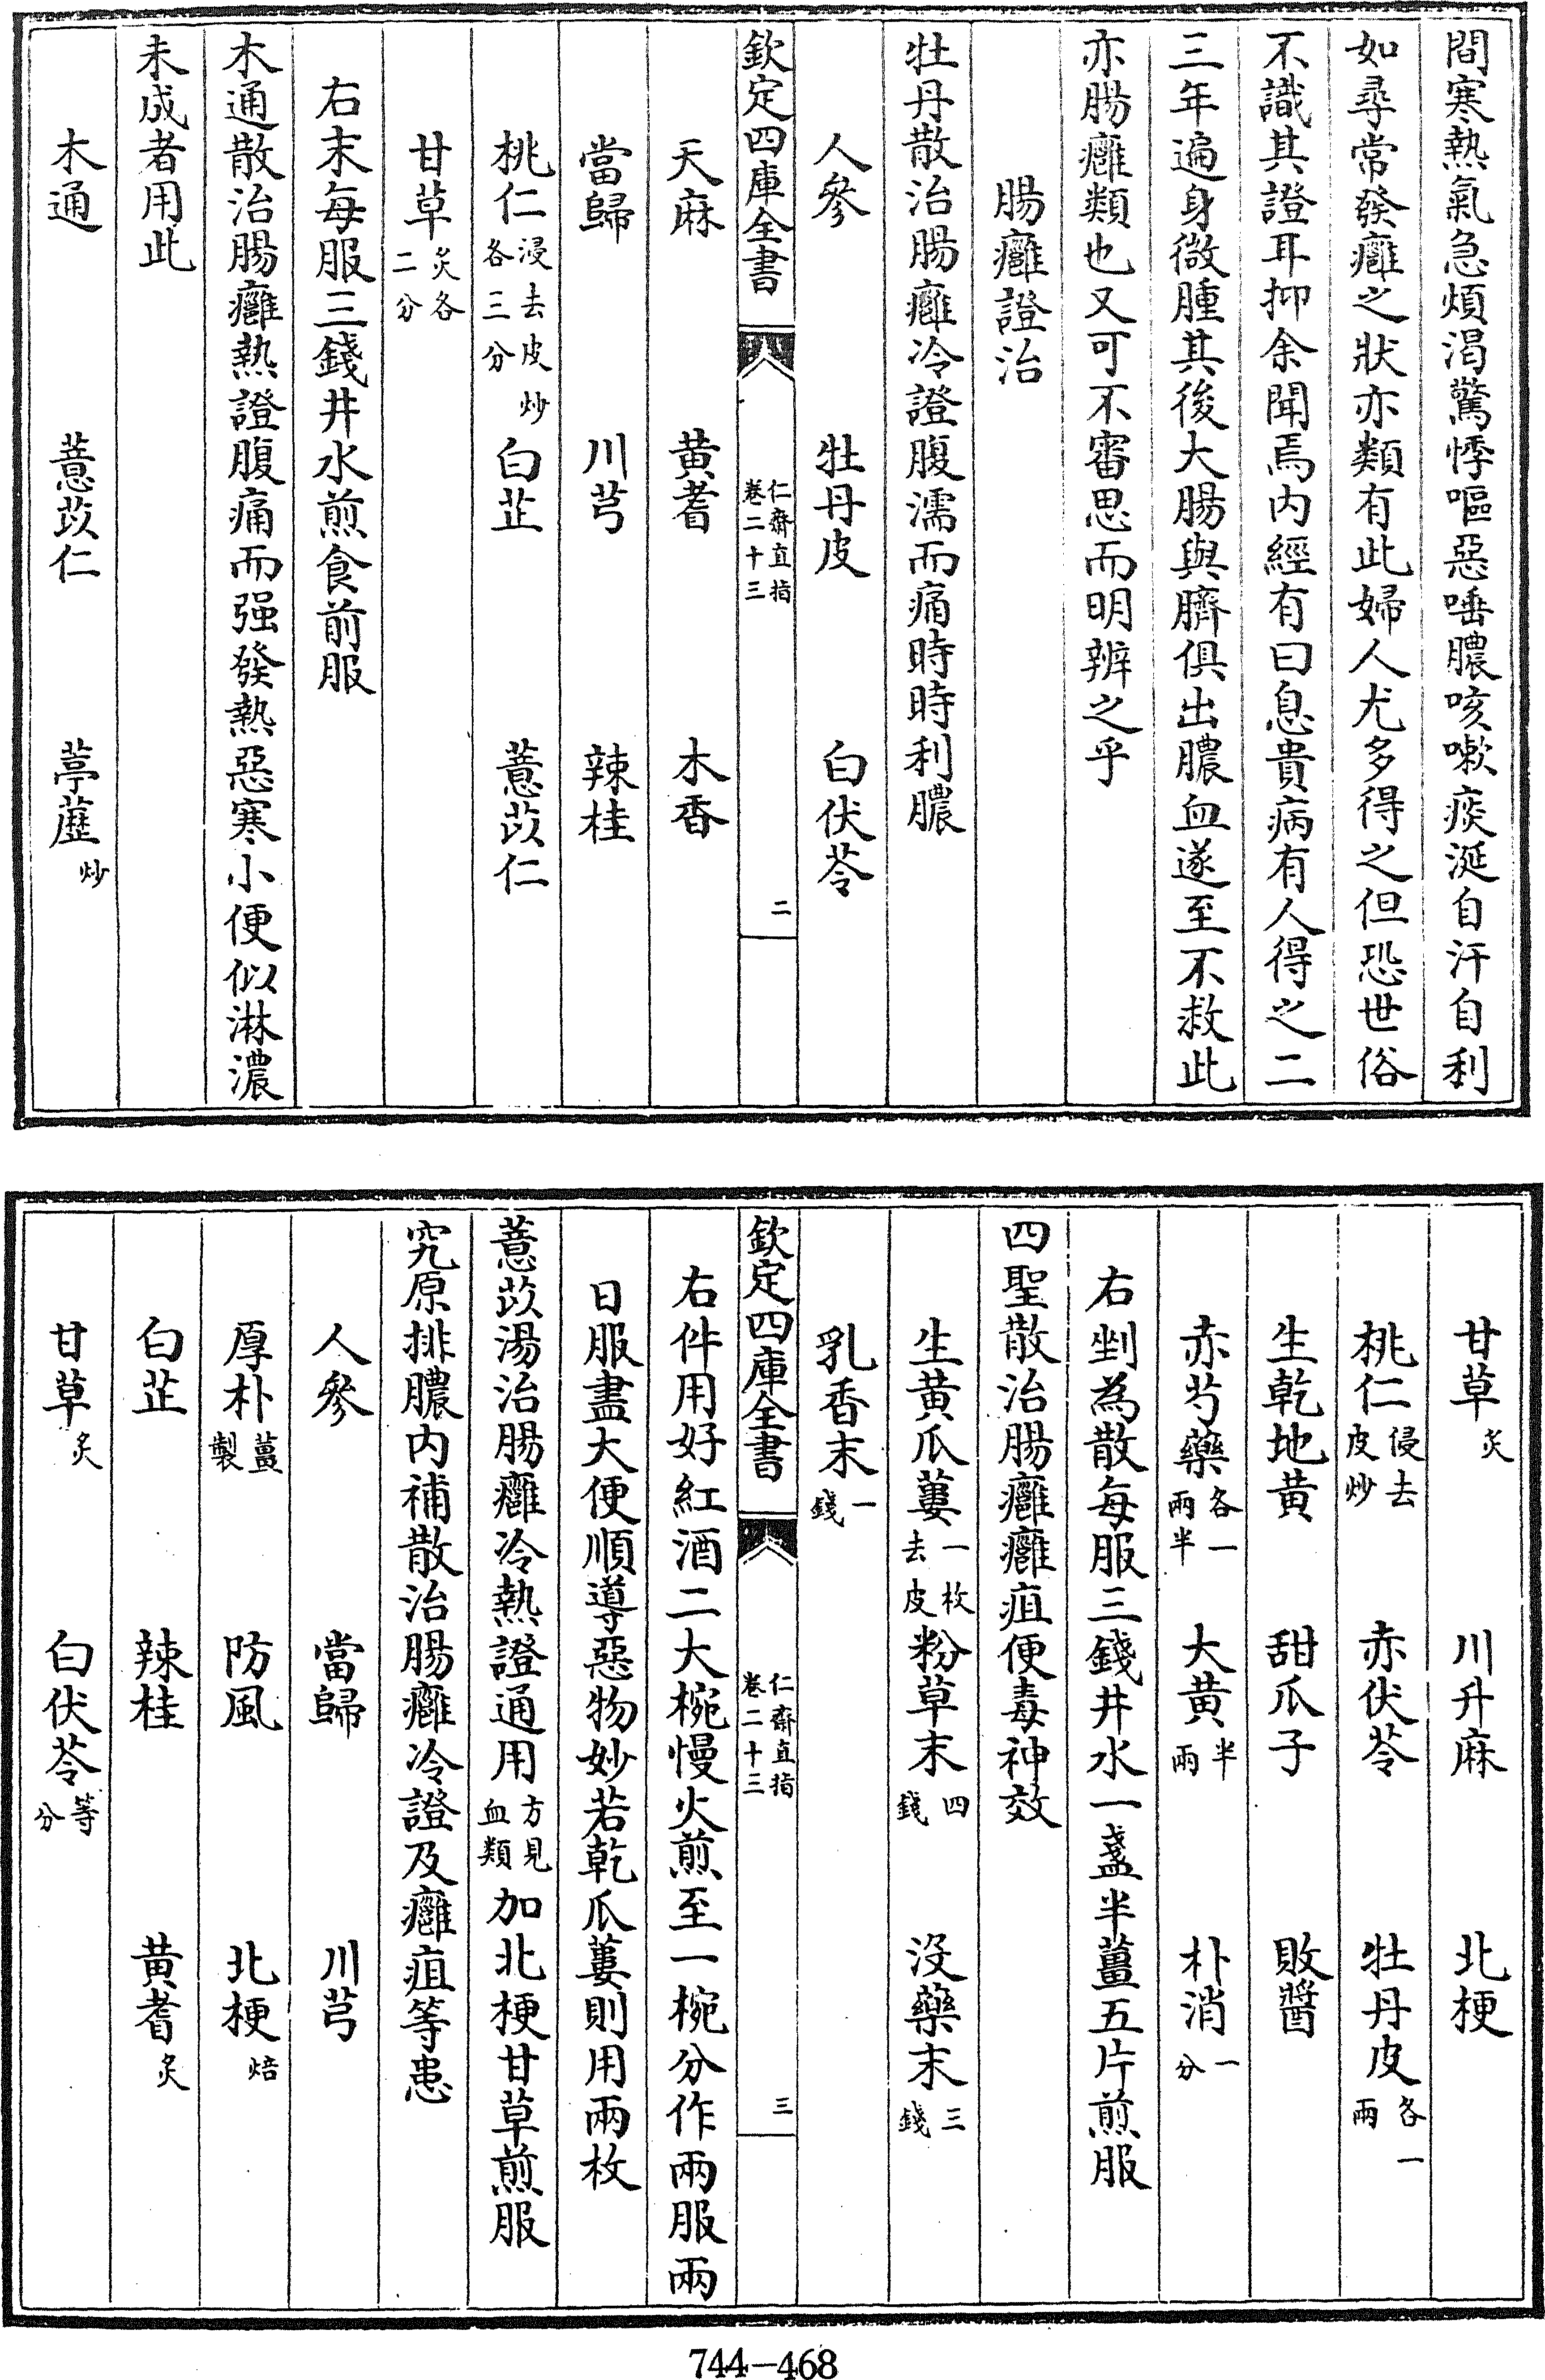 間寒熱氣急煩渇驚悸嘔惡唾膿咳嗽痰涎自汗自利
如尋常發癰之狀亦類有此婦人尤多得之但恐世俗
不識其證耳抑余聞焉内經有曰息賁病有人得之二
三年遍身微腫其後大腸與臍俱出膿血遂至不救此
亦腸癰類也又可不審思而明辨之乎
腸癰證治
牡丹散治腸癰冷證腹濡而痛時時利膿
人參　牡丹皮　白伏苓
欽定四庫全書　仁齋直指卷二十三　二
天麻　黄耆　木香
當歸　川芎　辣桂
桃仁浸去皮炒各三分　白芷　薏苡仁
甘草炙各二分
右末每服三錢井水煎食前服
木通散治腸癰熱證腹痛而强發熱惡寒小便似淋濃
未成者用此
木通　薏苡仁　葶藶炒
甘草炙　川升麻　北梗
桃仁侵去皮炒　赤伏苓　牡丹皮各一兩
生乾地黄　甜瓜子　敗醬
赤芍藥各一兩半　大黄半兩　朴消一分
右剉為散每服三錢井水一盞半薑五片煎服
四聖散治腸癰癰疽便毒神效
生黄瓜蔞一枚去皮　粉草末四錢　没藥末三錢
乳香末一錢
欽定四庫全書　仁齋直指卷二十三　三
右件用好紅酒二大椀慢火煎至一椀分作兩服兩
日服盡大便順導惡物妙若乾瓜蔞則用兩枚
薏苡湯治腸癰冷熱證通用方見血類加北梗甘草煎服
究原排膿内補散治腸癰冷證及癰疽等患
人參　當歸　川芎
厚朴薑製　防風　北梗焙
白芷　辣桂　黄耆炙
甘草炙　白伏苓等分
744-468